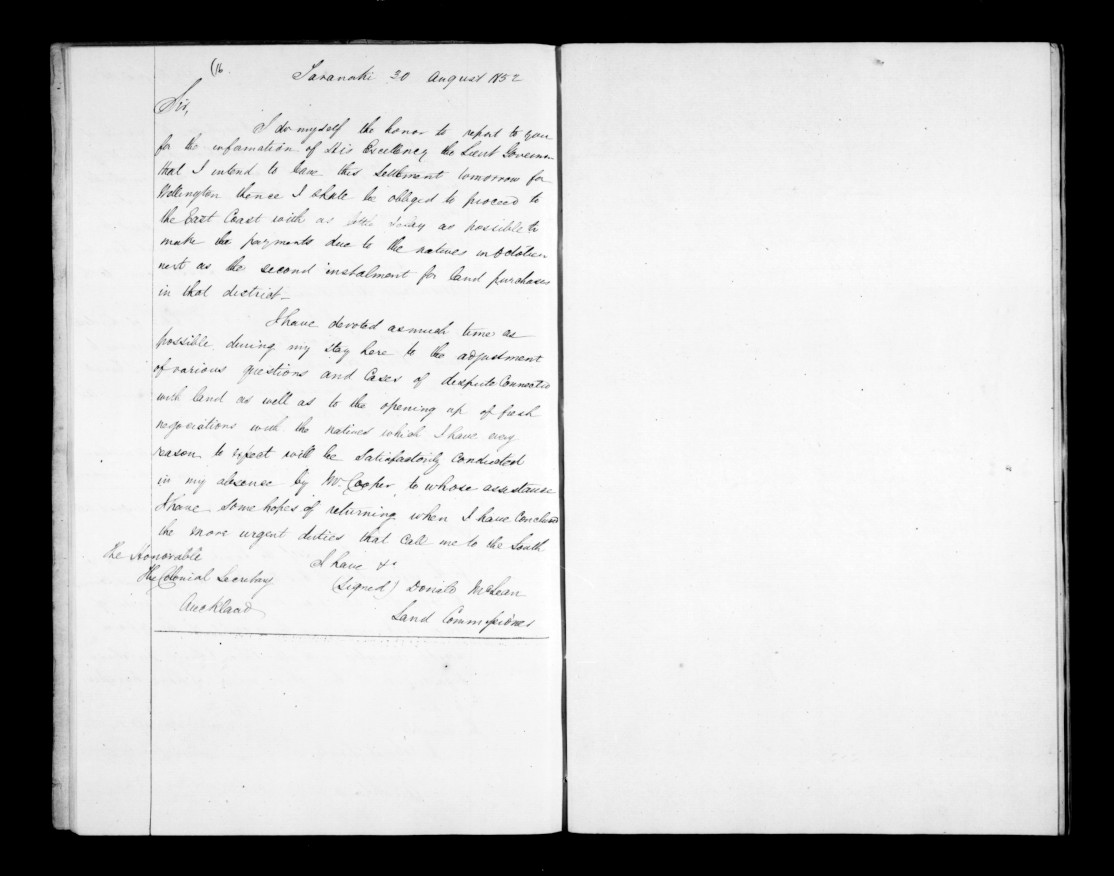 (16
Taranaki 30 August 1852
Sir,
I do myself the honor to report to you
for the information of His Excellency the Lieut Governor
that I intend to leave this Settlement tomorrow for
Wellington thence I shall be obliged to proceed to
the East Coast with as little delay as possible to
make the payments due to the natives in October
next as the second instalment for land purchases
in that district_
I have devoted as much time as
possible during my stay here to the adjustment
of various questions and Cases of dispute Connected
with land as well as to the opening up of fresh
negociations with the natives which I have every
reason to expect will be Satisfactorily Conducted
in my absence by Mr. Cooper to whose assistance
I have some hopes of returning when I have Concluded
the more urgent duties that Call me to the South
I have &c
The Honorable
The Colonial Secretary
Auckland
(Signed) Donald McLean
Land Commissioner